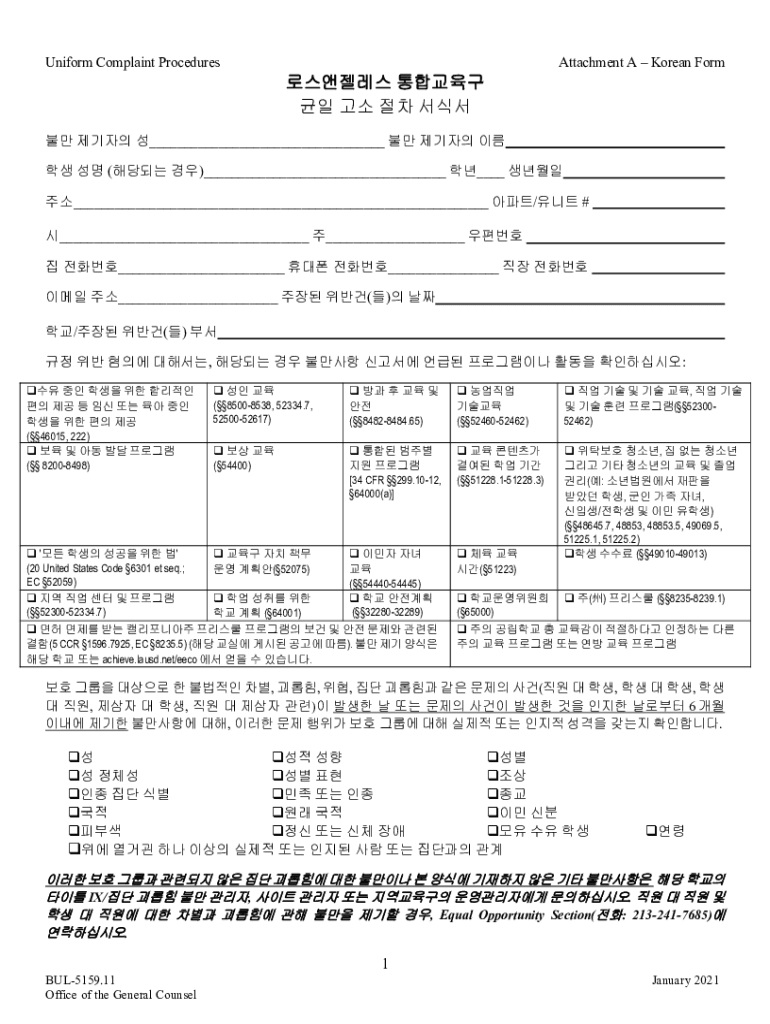 Uniform Complaint Procedures Attachment A – Korean Form
로스앤젤레스 통합교육구
균일 고소 절차 서식서
불만 제기자의 성__________________ 불만 제기자의 이름__________________
학생 성명 (해당되는 경우)__________________ 학년____ 생년월일__________________
주소__________________ 아파트/유니트 # __________________
시__________________ 주__________________ 우편번호 __________________
집 전화번호__________________ 휴대폰 전화번호__________________ 직장 전화번호 __________________
이메일 주소__________________ 주장된 위반건(들)의 날짜__________________
학교/주장된 위반건(들) 부서__________________
규정 위반 혐의에 대해서는, 해당되는 경우 불만사항 신고서에 언급된 프로그램이나 활동을 확인하십시오:
❑수유 중인 학생을 위한 합리적인
편의 제공 등 임신 또는 육아 중인
학생을 위한 편의 제공
(§§46015, 222)
❑ 성인 교육
(§§8500-8538, 52334.7,
52500-52617)
❑ 방과 후 교육 및
안전
(§§8482-8484.65)
❑ 농업직업
기술교육
(§§52460-52462)
❑ 직업 기술 및 기술 교육, 직업 기술
및 기술 훈련 프로그램(§§52300-
52462)
❑ 보육 및 아동 발달 프로그램
(§§ 8200-8498)
❑ 보상 교육
(§54400)
❑ 통합된 범주별
지원 프로그램
[34 CFR §§299.10-12,
§64000(a)]
❑ 교육 콘텐츠가
결여된 학업 기간
(§§51228.1-51228.3)
❑ 위탁보호 청소년, 집 없는 청소년
그리고 기타 청소년의 교육 및 졸업
권리(예: 소년법원에서 재판을
받았던 학생, 군인 가족 자녀,
신입생/전학생 및 이민 유학생)
(§§48645.7, 48853, 48853.5, 49069.5,
51225.1, 51225.2)
❑ '모든 학생의 성공을 위한 법'
(20 United States Code §6301 et seq.;
EC §52059)
❑ 교육구 자치 책무
운영 계획안(§52075)
❑ 이민자 자녀
교육
(§§54440-54445)
❑ 체육 교육
시간(§51223)
❑학생 수수료 (§§49010-49013)
❑ 지역 직업 센터 및 프로그램
(§§52300-52334.7)
❑ 학업 성취를 위한
학교 계획 (§64001)
❑ 학교 안전계획
(§§32280-32289)
❑ 학교운영위원회
(§65000)
❑ 주(州) 프리스쿨 (§§8235-8239.1)
❑ 면허 면제를 받는 캘리포니아주 프리스쿨 프로그램의 보건 및 안전 문제와 관련된
결함(5 CCR §1596.7925, EC §8235.5) (해당 교실에 게시된 공고에 따름). 불만 제기 양식은
해당 학교 또는 achieve.lausd.net/eeco 에서 얻을 수 있습니다.
❑ 주의 공립학교 총 교육감이 적절하다고 인정하는 다른
주의 교육 프로그램 또는 연방 교육 프로그램
보호 그룹을 대상으로 한 불법적인 차별, 괴롭힘, 위협, 집단 괴롭힘과 같은 문제의 사건(직원 대 학생, 학생 대 학생, 학생
대 직원, 제삼자 대 학생, 직원 대 제삼자 관련)이 발생한 날 또는 문제의 사건이 발생한 것을 인지한 날로부터 6 개월
이내에 제기한 불만사항에 대해, 이러한 문제 행위가 보호 그룹에 대해 실제적 또는 인지적 성격을 갖는지 확인합니다.
❑성 ❑성적 성향 ❑성별
❑성 정체성 ❑성별 표현 ❑조상
❑인종 집단 식별 ❑민족 또는 인종 ❑종교
❑국적 ❑원래 국적 ❑이민 신분
❑피부색 ❑정신 또는 신체 장애 ❑모유 수유 학생 ❑연령
❑위에 열거괸 하나 이상의 실제적 또는 인지된 사람 또는 집단과의 관계
이러한 보호 그룹과 관련되지 않은 집단 괴롭힘에 대한 불만이나 본 양식에 기재하지 않은 기타 불만사항은 해당 학교의
타이틀 IX/집단 괴롭힘 불만 관리자, 사이트 관리자 또는 지역교육구의 운영관리자에게 문의하십시오. 직원 대 직원 및
학생 대 직원에 대한 차별과 괴롭힘에 관해 불만을 제기할 경우, Equal Opportunity Section(전화: 213-241-7685)에
연락하십시오.
1
BUL-5159.11 January 2021
Office of the General Counsel